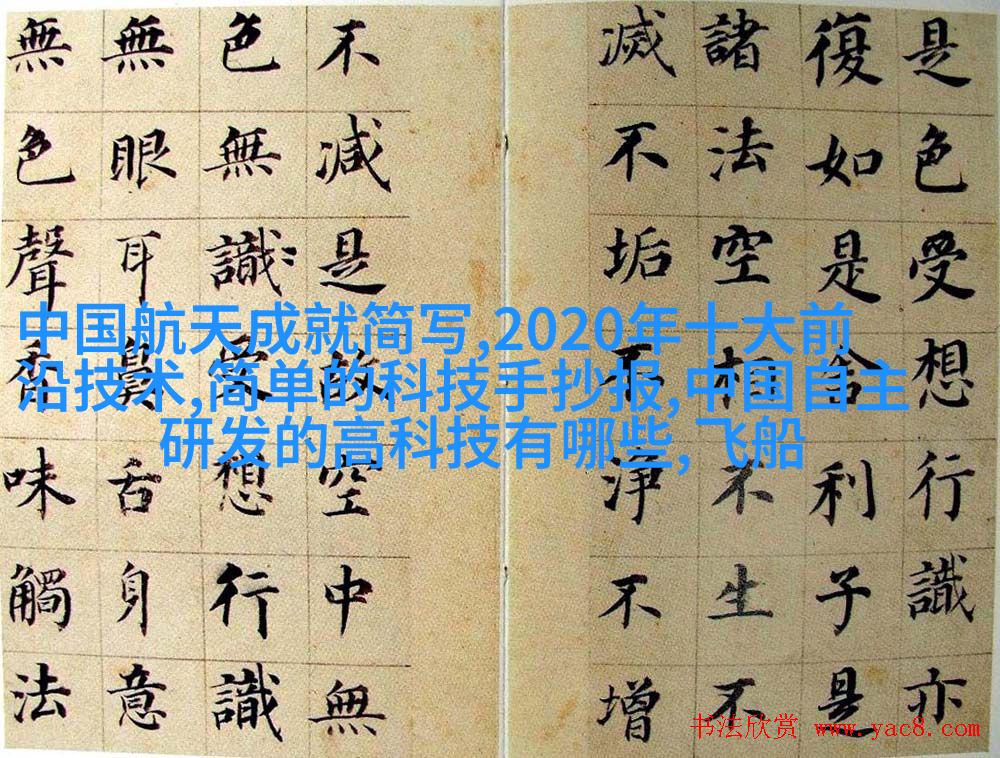 是色受想行識亦
復如是舍利子是
諸法空相不生不
滅不垢不淨不增
不減是故空中無
色無識受想行識
無眼耳鼻舌身意
無色聲香味觸法
中国航天成就简写,2020年十大前
沿技术,简单的科技手抄报,中国自主
研发的高科技有哪些, 飞船
书法欣赏 www.yac8.com